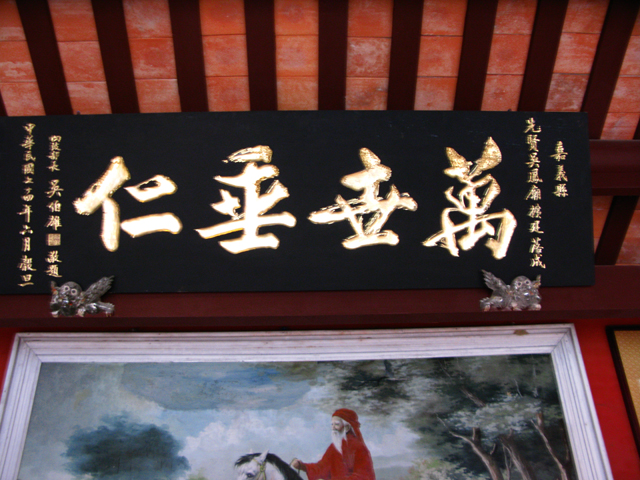 嘉義縣
先賢吳鳳廟擴建落成
萬世垂仁
吳伯雄 敬題
中華民國七十四年六月穀旦